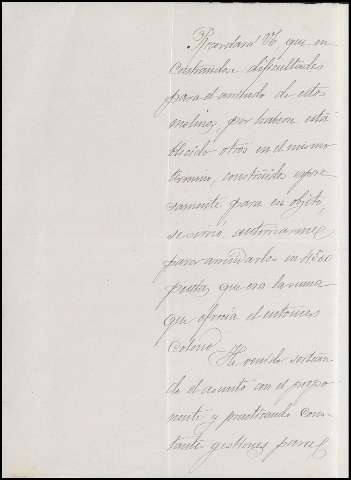 Recordará V. que en
contrandose dificultades
para el arriendo de estos
molinos, por haberse esta
blecido otros en el mismo
termino, construidos expre
samente para su objeto,
se sirvió autorizarme
para arrendarlos en 4500
pesetas, que era la suma
que ofrecia el entonces
colono.
He venido sortean
do el asunto con el propo-
nente y practicando cons-
tantes gestiones para